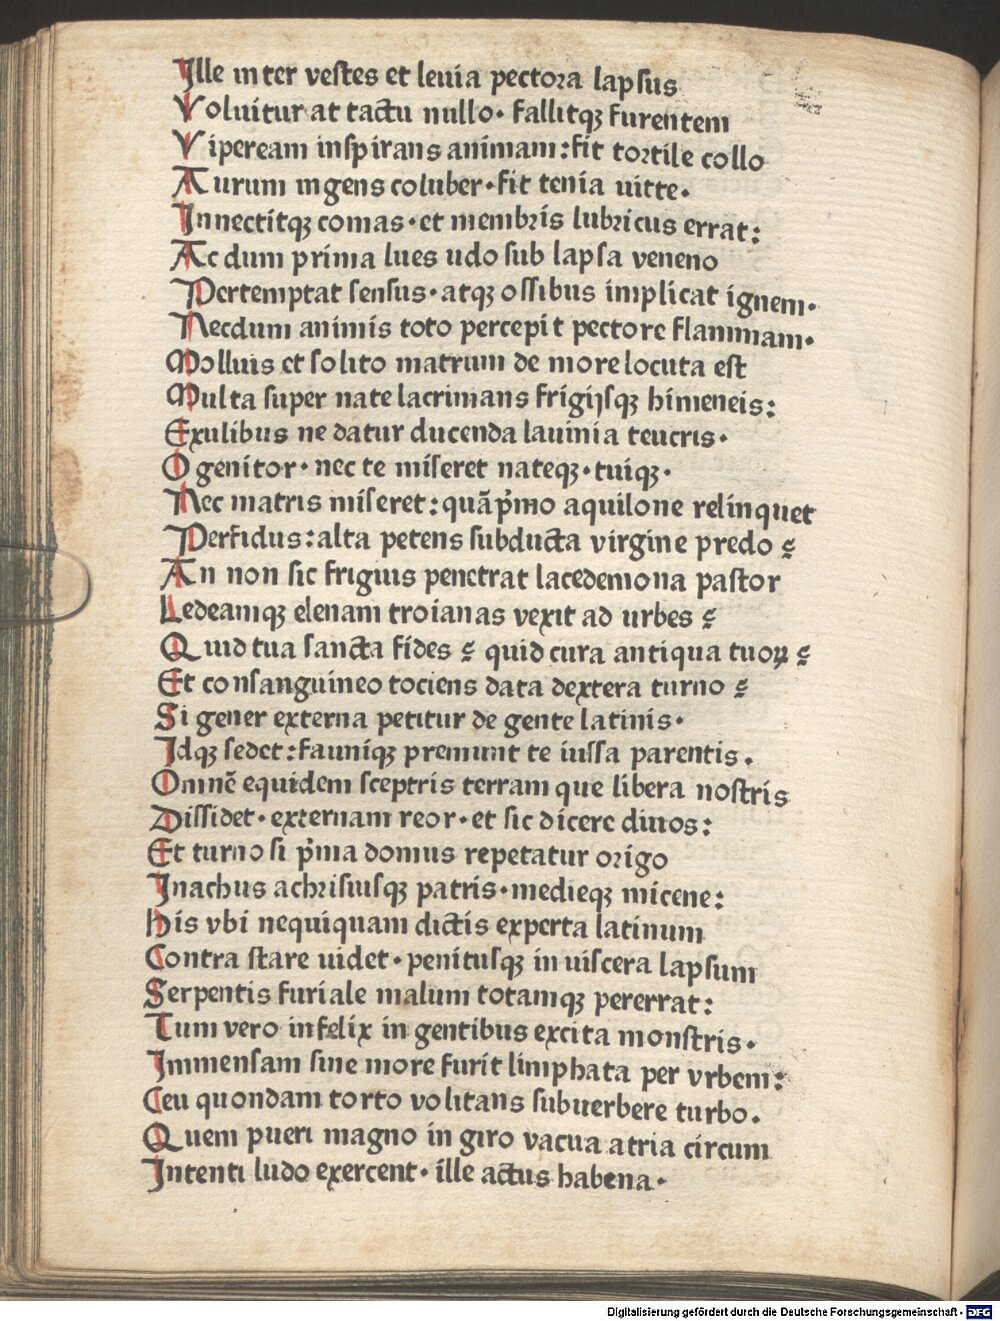 Ille inter vestes et leuia pectora lapsus
Voluitur at tactu nullo· fallitqꝫ furentem
Vipeream inspirans animam: fit tortile collo
Aurum ingens coluber· fit tenia uitte.
Innectitqꝫ comas· et membris lubricus errat:
Ac dum prima lues udo sub lapsa veneno
Pertemptat sensus· atqꝫ ossibus implicat ignem·
Necdum animis toto percepit pectore flammam·
Molluis et solito matrum de more locuta est
Multa super nate lacrimans frigijsqꝫ himeneis:
Exulibus ne datur ducenda lauinia teucris·
O genitor· nec te miseret nateqꝫ· tuiqꝫ·
Nec matris miseret: quā pͥmo aquilone relinquet
Perfidus: alta petens subducta virgine predo ꝛ
An non sic frigius penetrat lacedemona pastor
Ledeamqꝫ elenam troianas vexit ad urbes ꝛ
Quid tua sancta fides ꝛ quid cura antiqua tuoꝝ ꝛ
Et consanguineo tociens data dextera turno ꝛ
Si gener externa petitur de gente latinis·
Idqꝫ sedet: fauniqꝫ premunt te iussa parentis.
Omnē equidem sceptris terram que libera nostris
Dissidet· externam reor· et sic dicere diuos:
Et turno si pͥma domus repetatur origo
Inachus achrisiusqꝫ patris· medieqꝫ micene:
His vbi nequiquam dictis experta latinum
Contra stare uidet· penitusqꝫ in uiscera lapsum
Serpentis furiale malum totamqꝫ pererrat:
Tum vero infelix ingentibus excita monstris·
Immensam sine more furit limphata per vrbem:
Ceu quondam torto volitans sub uerbere turbo.
Quem pueri magno in giro vacua atria circum
Intenti ludo exercent· ille actus habena·
Digitalisierung gefördert durch die Deutsche Forschungsgemeinschaft - DFG